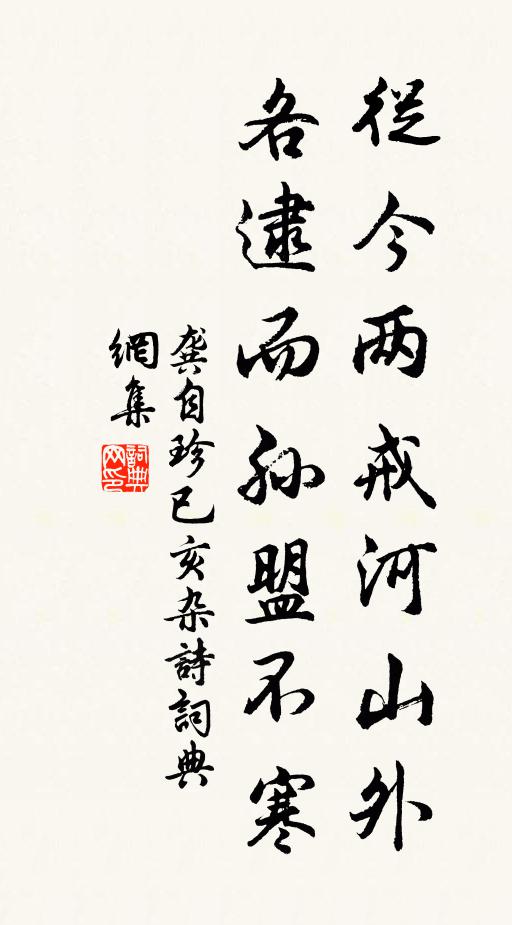 從今两戒河山外
各逮而孫盟不寒
龚自珍已亥杂詩詞典
網集
詞典
网印